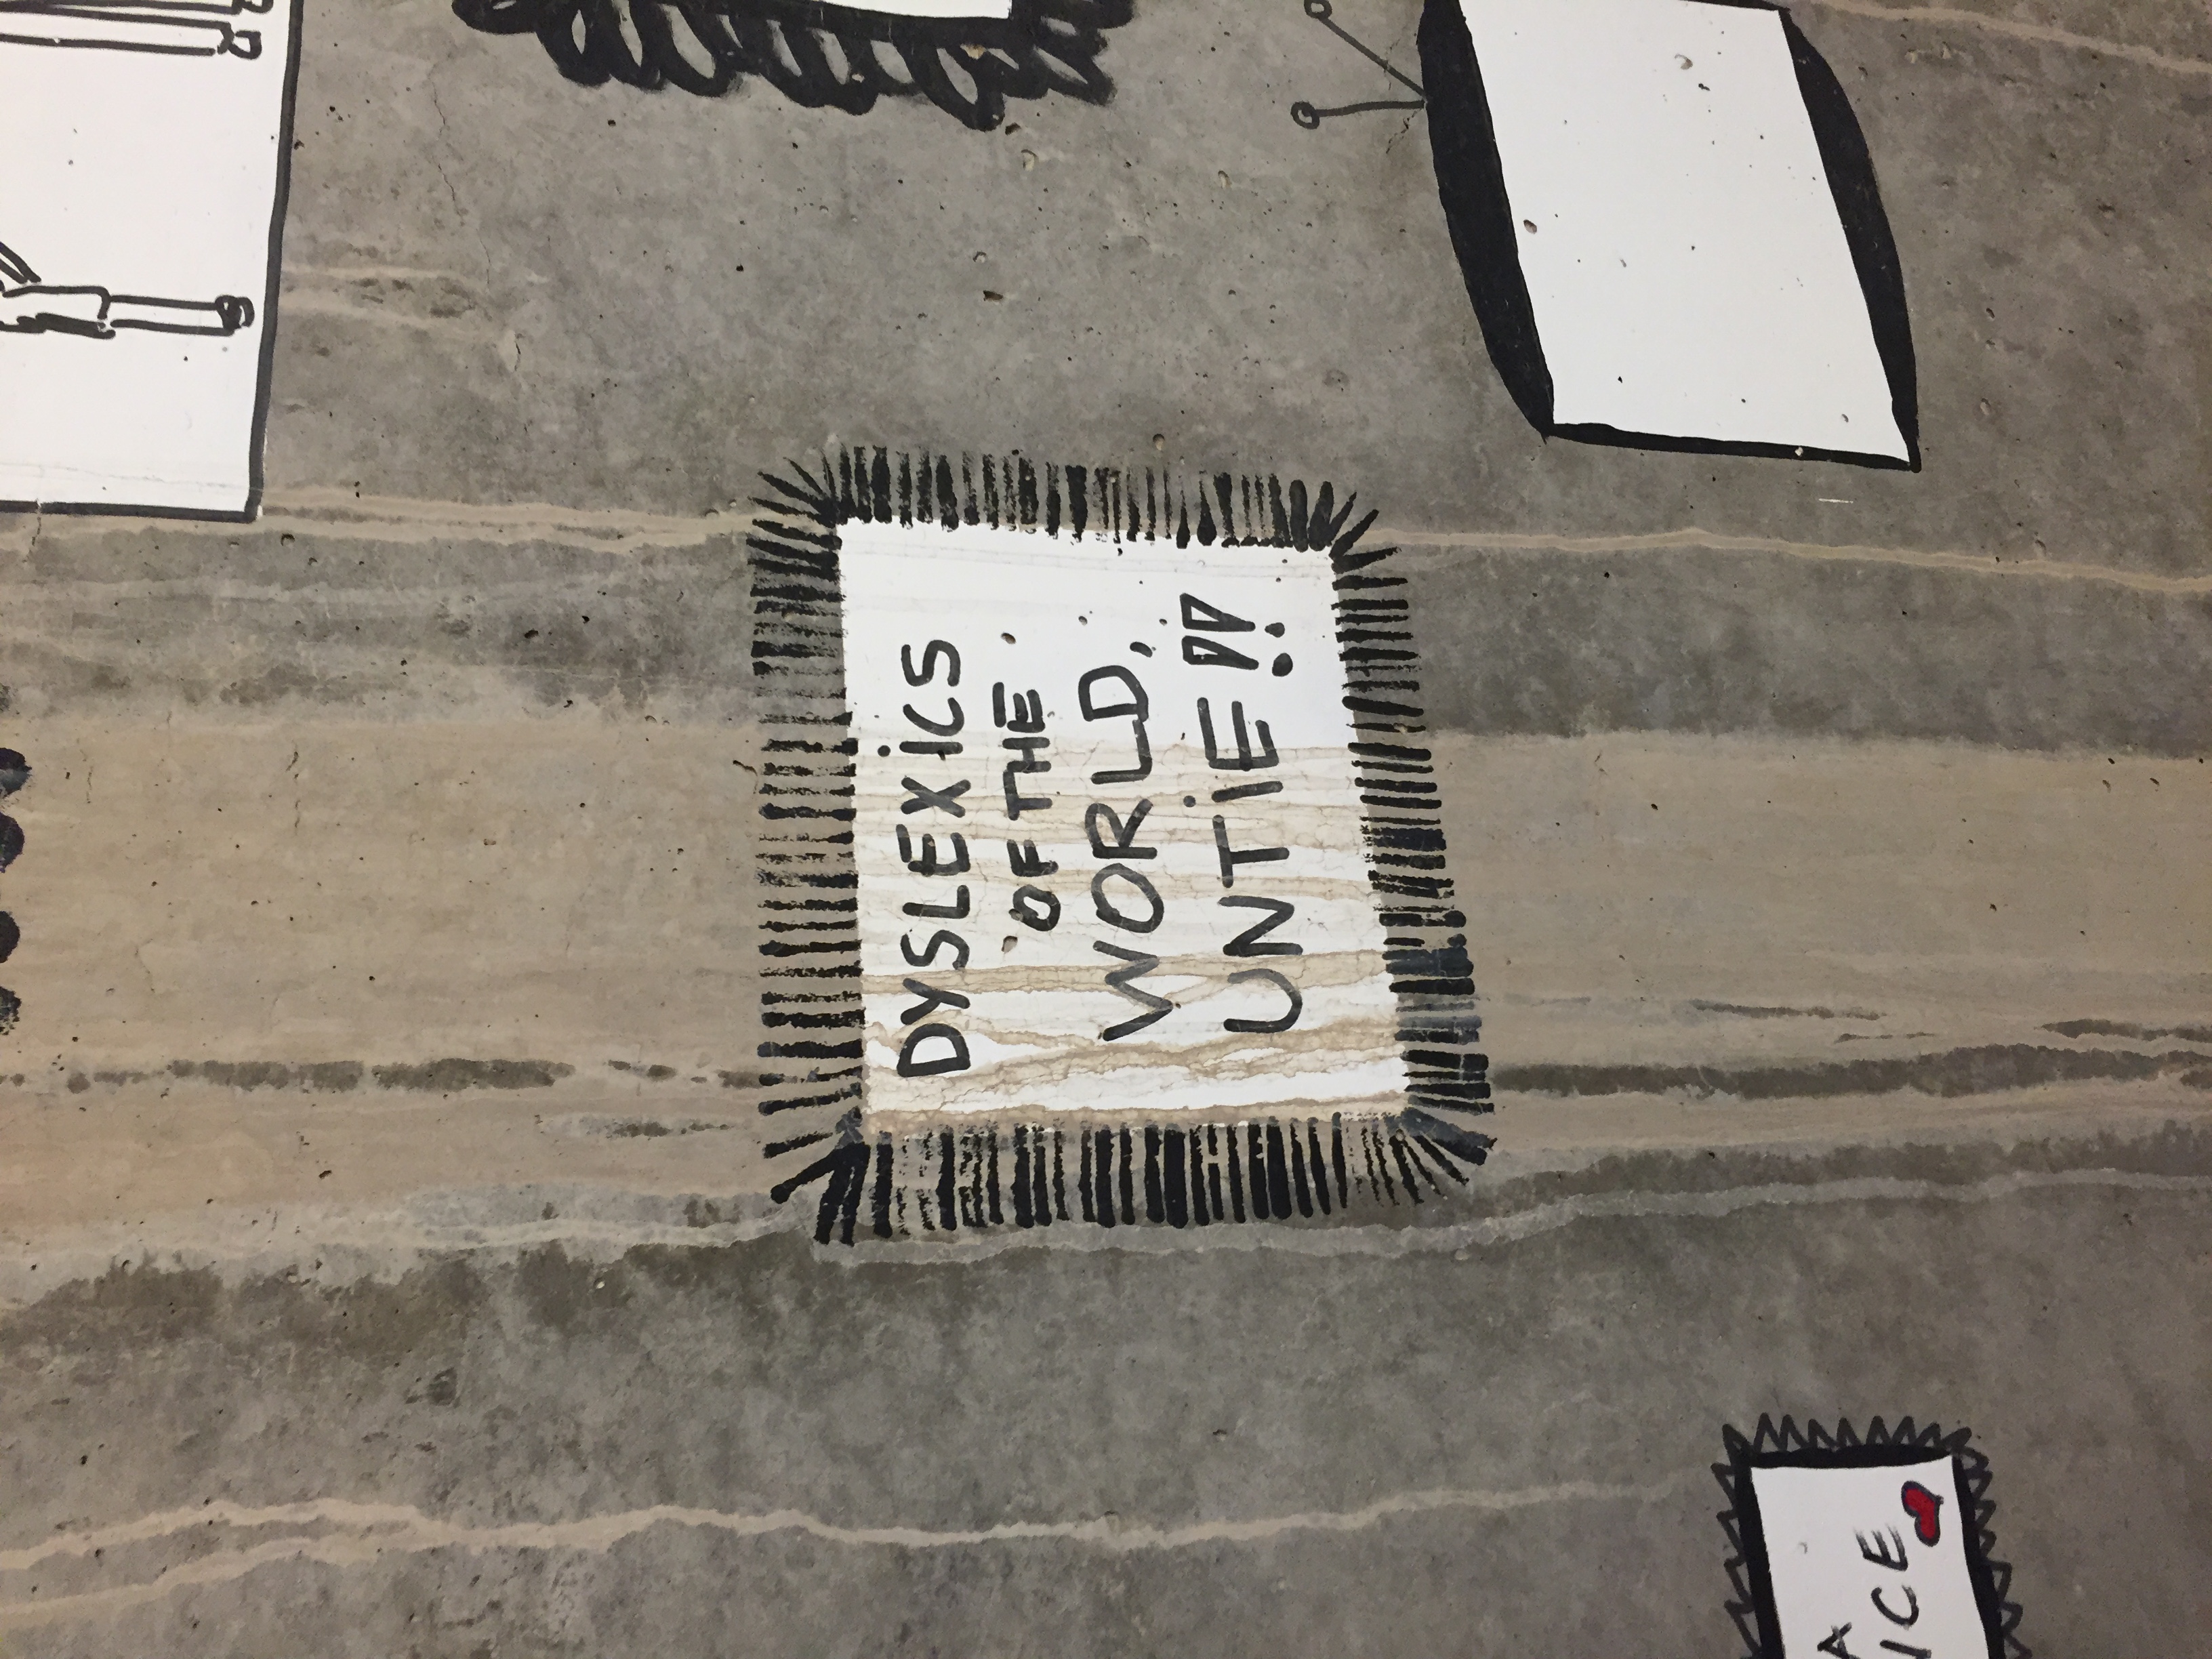 DYSLEXiCS
OF THE
WORLD,
UNTiE!!
A